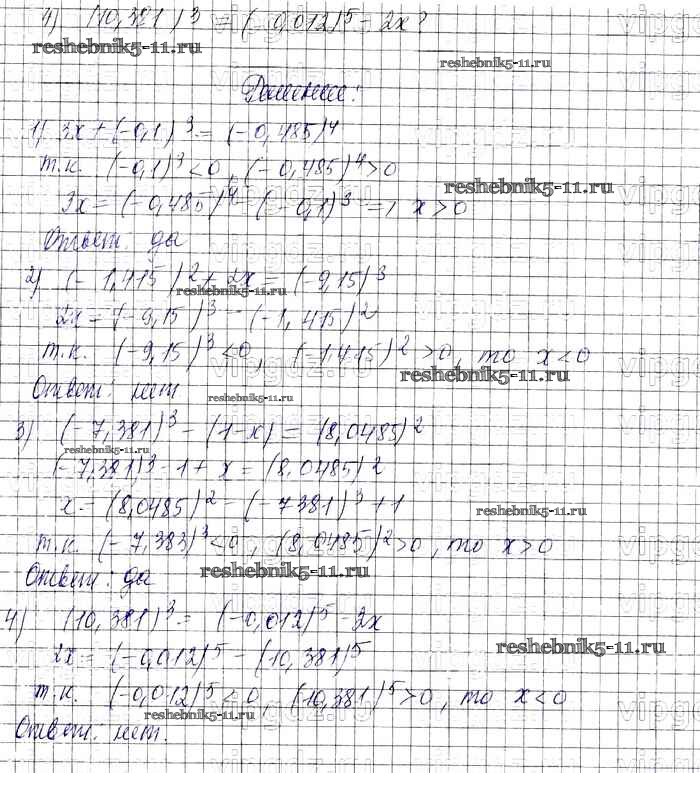 4) (10,381)³ = (-0,012)⁵ - 2x?
reshebnik5-11.ru
reshebnik5-11.ru
Решение:
1) 3x + (-0,1)³ = (-0,485)⁴
т.к. (-0,1)³ < 0, (-0,485)⁴ > 0
reshebnik5-11.ru
3x = (-0,485)⁴ - (-0,1)³ => x > 0
Ответ: да
2) (-1,415)² + 2x = (-9,15)³
reshebnik5-11.ru
2x = (-9,15)³ - (-1,415)²
т.к. (-9,15)³ < 0, (-1,415)² > 0, то x < 0
reshebnik5-11.ru
Ответ: нет
reshebnik5-11.ru
3) (-7,381)³ - (1-x) = (8,0485)²
reshebnik5-11.ru
(-7,381)³ - 1 + x = (8,0485)²
x = (8,0485)² - (-7381)³ + 1
reshebnik5-11.ru
т.к. (-7,383)³ < 0, (8,0485)² > 0, то x > 0
Ответ: да
reshebnik5-11.ru
4) (10,381)³ = (-0,012)⁵ - 2x
reshebnik5-11.ru
2x = (-0,012)⁵ - (10,381)⁵
т.к. (-0,012)⁵ < 0, (10,381)⁵ > 0, то x < 0
reshebnik5-11.ru
Ответ: нет.